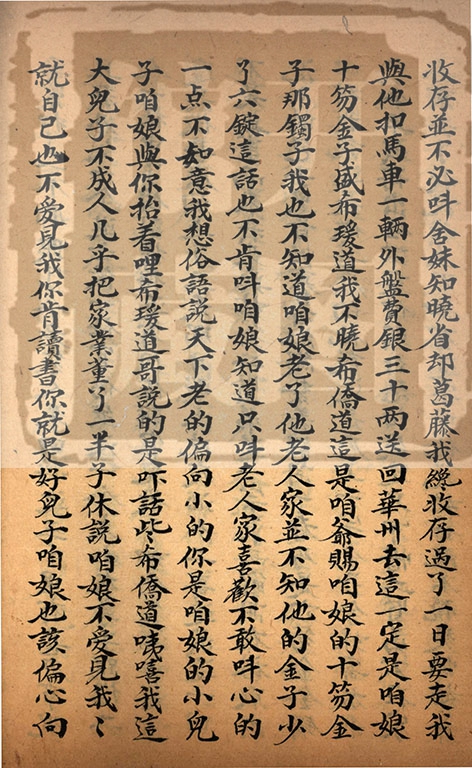 收存並不必呌舍妹知曉省却葛藤我纔收存過了一日要走我
與他扣馬車一輛外盤費銀三十两送回華州去這一定是咱娘
十笏金子盛希瑗道我不曉希僑道這是咱爺賜咱娘的十笏金
子那鐲子我也不知道咱娘老了他老人家並不知他的金子少
了六錠這話也不肯呌咱娘知道只呌老人家喜歡不敢呌心的
一点不如意我想俗語說天下老的偏向小的你是咱娘的小兒
子咱娘與你抬着哩希瑗道哥說的是吓話些希僑道咦嘻我這
大兒子不成人几乎把家業董了一半子休說咱娘不愛見我〻
就自己也不愛見我你肯讀書你就是好兒子咱娘也該偏心向